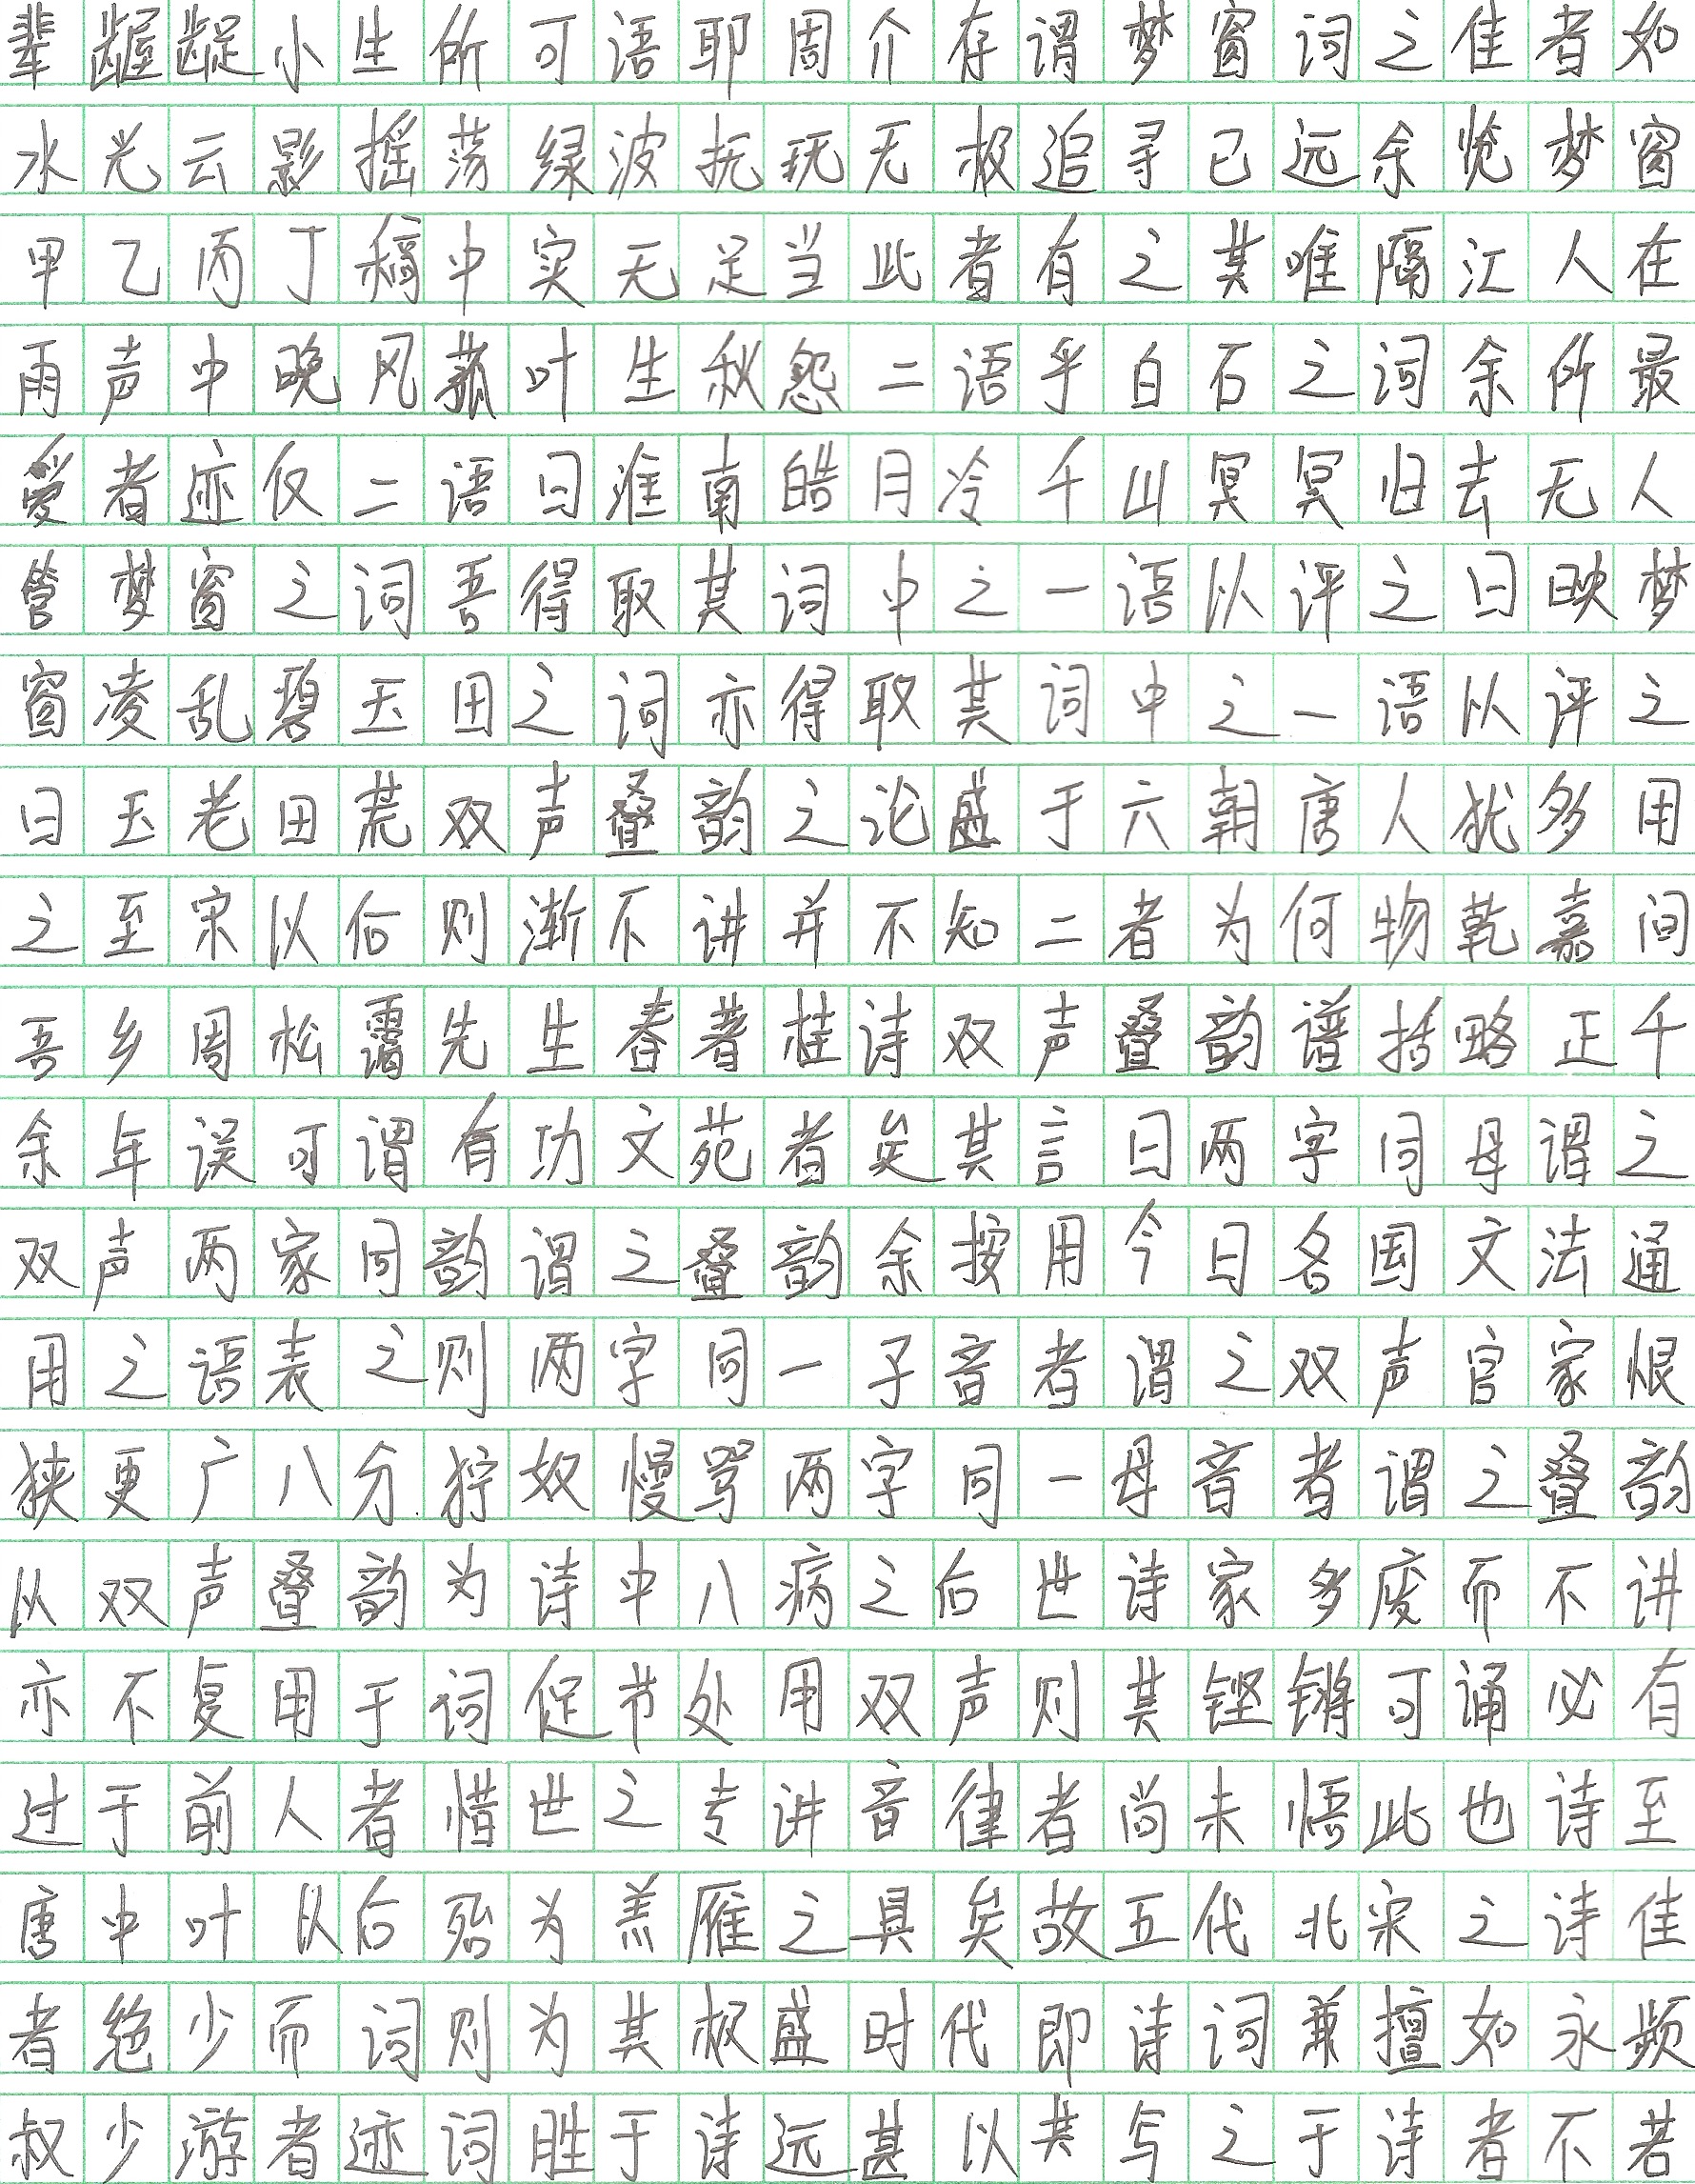 辈龌龊小生所可语耶周介存谓梦窗词之佳者如
水光云影摇荡绿波抚玩无极追寻已远余览梦窗
甲乙丙丁稿中实无足当此者有之其唯隔江人在
雨声中晚风菰叶生秋怨二语乎白石之词余所最
爱者迹仅二语曰淮南皓月冷千山冥冥归去无人
管梦窗之词吾得取其词中之一语以评之曰映梦
窗凌乱碧玉田之词亦得取其词中之一语以评之
曰玉老田荒双声叠韵之论盛于六朝唐人犹多用
之至宋以后则渐不讲并不知二者为何物乾嘉间
吾乡周松霭先生春著桂诗双声叠韵谱括略正千
余年误可谓有功文苑者矣其言曰两字同母谓之
双声两家同韵谓之叠韵余按用今日各国文法通
用之语表之则两字同一子音者谓之双声官家恨
狭更广八分狞奴慢骂两字同一母音者谓之叠韵
从双声叠韵为诗中八病之后世诗家多废而不讲
亦不复用于词促节处用双声则其铿锵可诵必有
过于前人者惜世之专讲音律者尚未悟此也诗至
唐中叶以后殆为羔雁之具矣故五代北宋之诗佳
者绝少而词则为其极盛时代即诗词兼擅如永频
叔少游者迹词胜于诗远甚以其写之于诗者不若